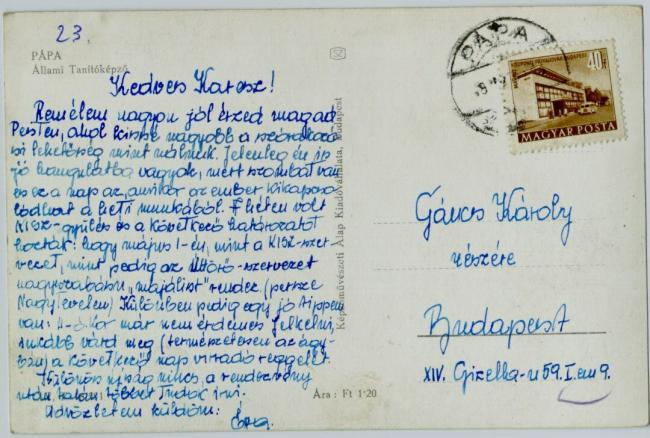 23.
PÁPA
Állami Tanítóképző
Kedves Karesz!
Remélem nagyon jól érzed magad
Pesten, ahol kissé nagyobb a szórakozá
si lehetőség mint nálunk. Jelenleg én is
jó hangulatba vagyok, mert szombat van
és ez a nap az, amikor az ember kikapcso
lódhat a heti munkából. E héten volt
KISZ-gyűlés és a következő határozatot
hozták: hogy május 1-én, mint a KISZ-szer-
vezet, mint pedig az Úttörő-szervezet
nagyszabású „majálist" rendez (persze
Nagytevelen) Különben pedig egy jó tippem
van: 4-kor már nem érdemes felkelni,
inkább várd meg (természetesen az ágy-
ban) a következő nap virradó reggelét.
Különös újság nincs, a rendezvény
után talán többet tudok írni.
Üdvözletem küldöm:
Éva.
Képzőművészeti Alap Kiadóvállalata, Budapest
Ára: Ft 1·20
PÁPA
40 f
MAGYAR POSTA
Gáncs Károly
részére
Budapest
XIV. Gizella-u 59. I. em 9.